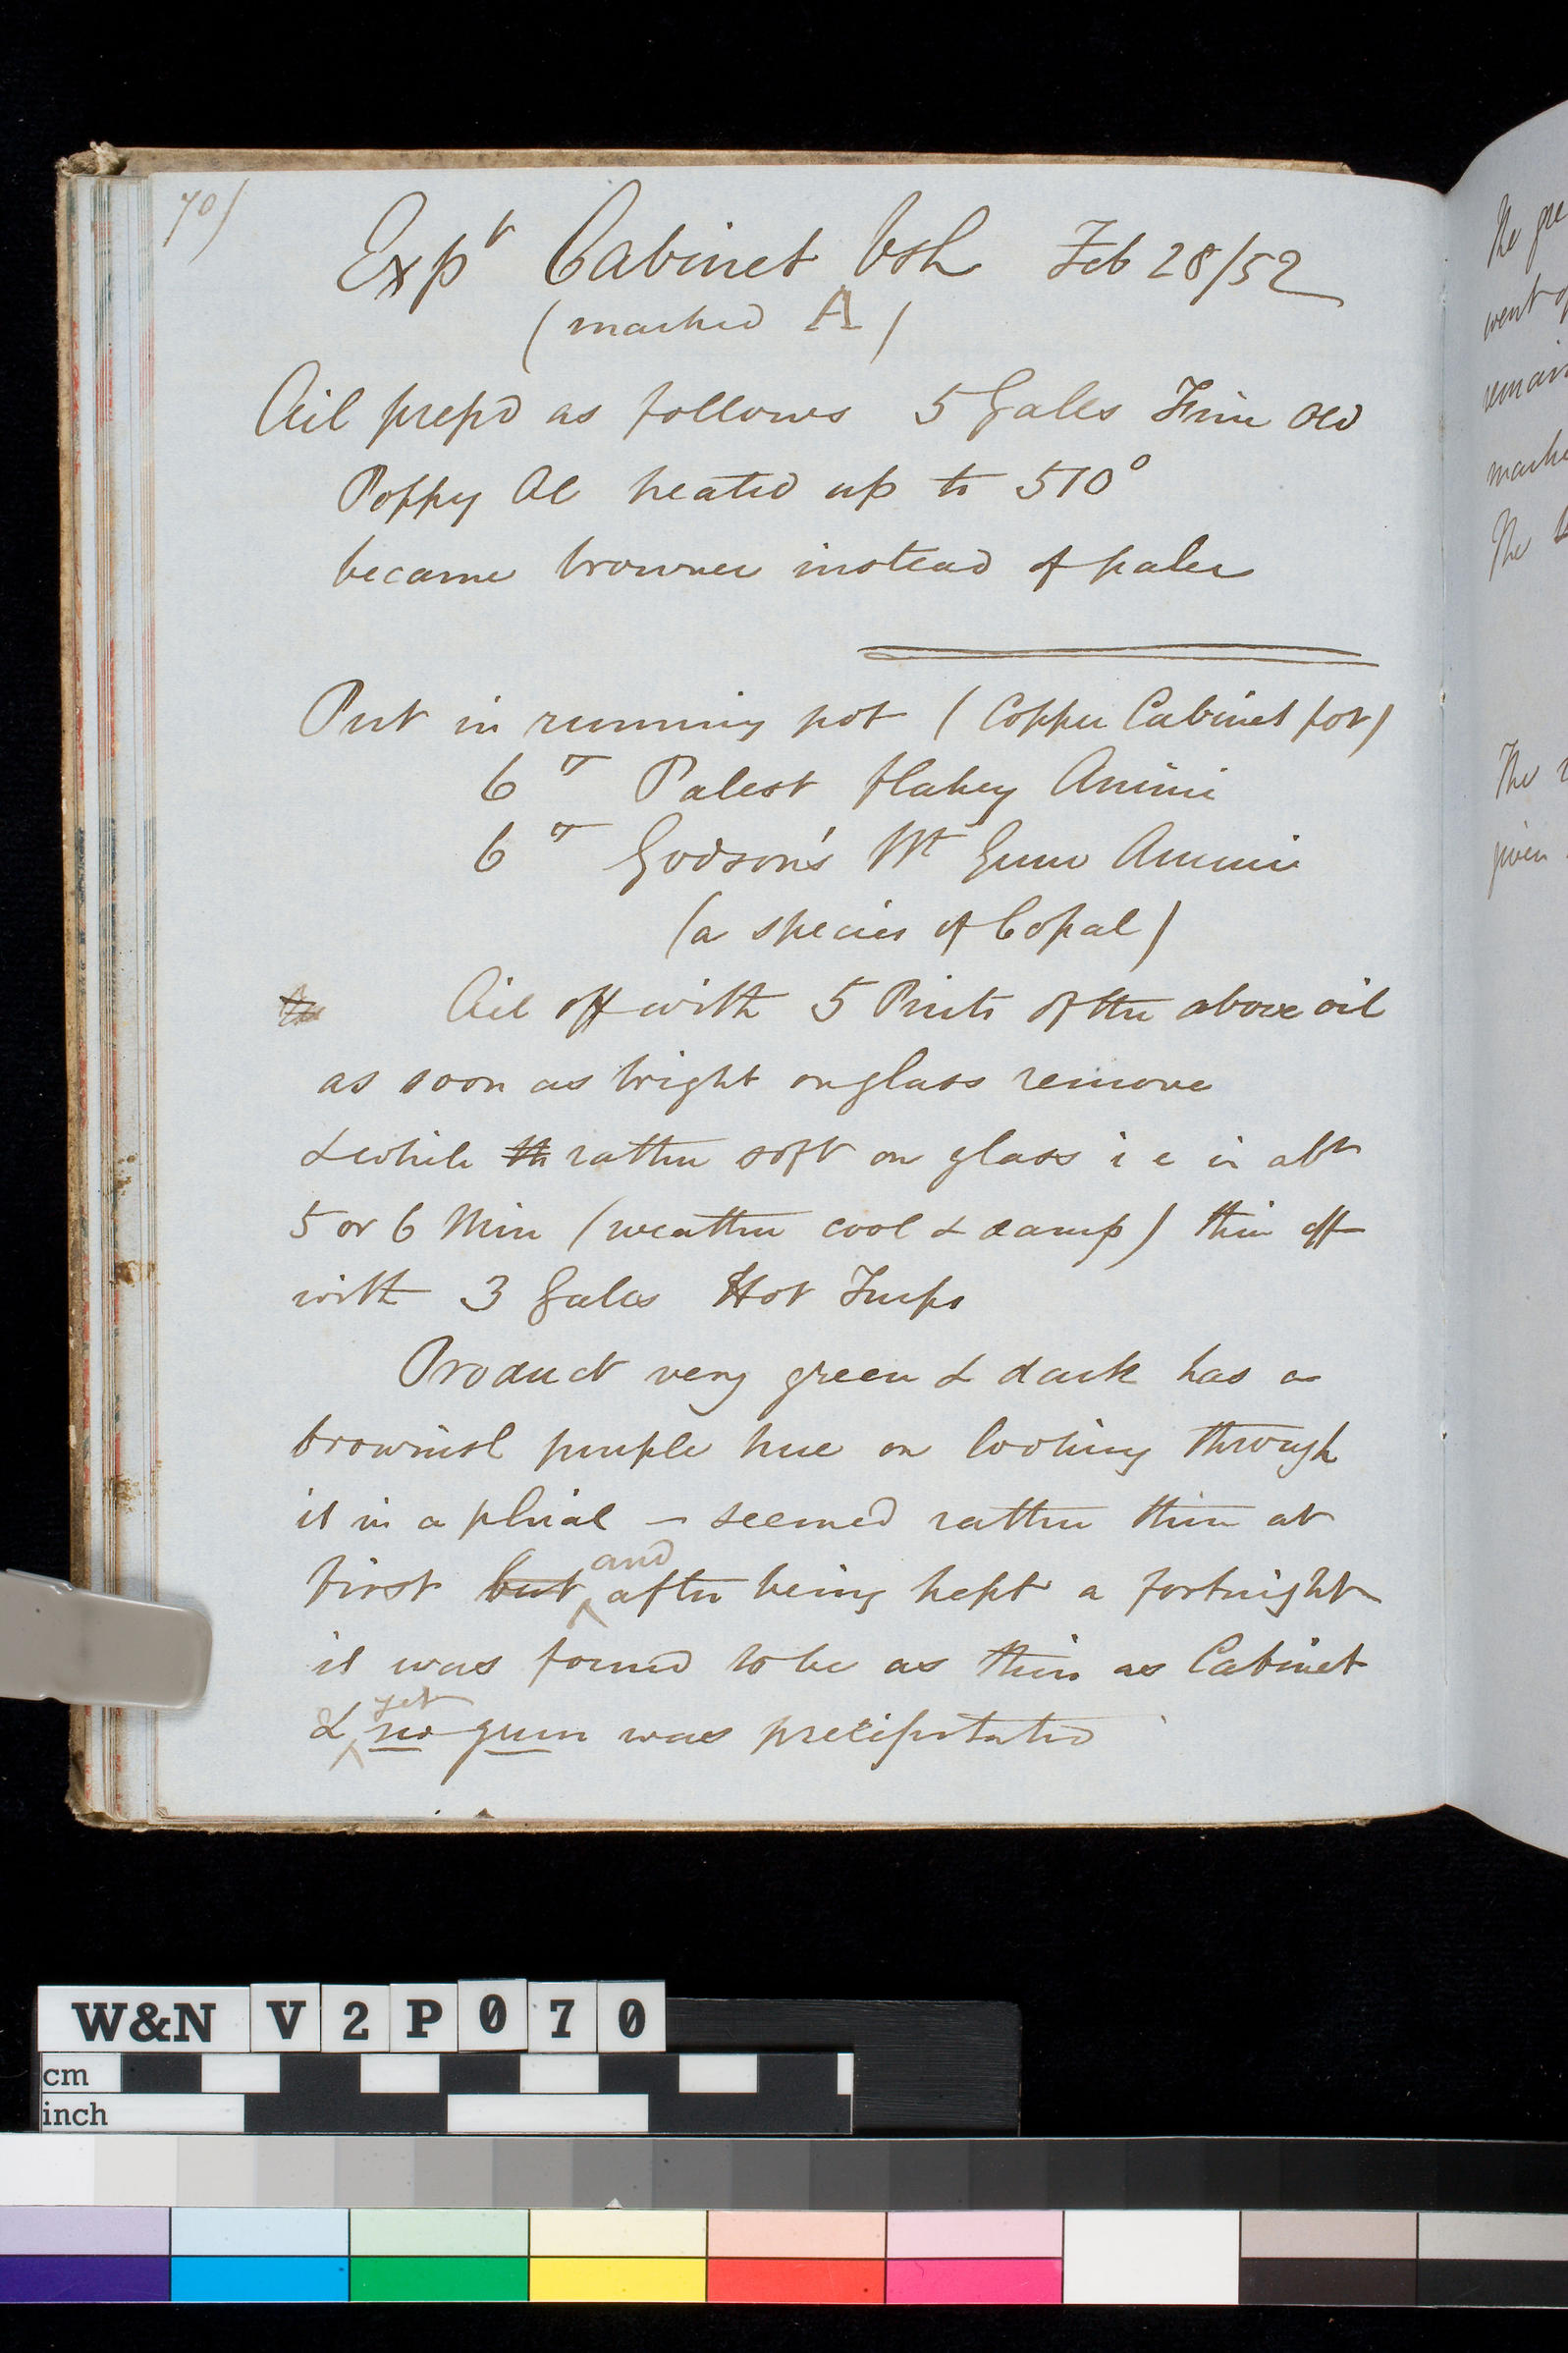 70)
Expt Cabinet Vsh Feb 28/52
(marked A)
Oil prepd as follows 5 Galls Fine Old
Poppy Oil heated up to 510°
became browner instead of paler
Put in running pot (Copper Cabinet pot)
6 Palest flakey Animi
6 Godson's Wt Gum Animi
(a species of Copal)
Oil off with 5 Pints of the above oil
as soon as bright on glass remove
& while th rather soft on glass i e in abt
5 or 6 Min (weather cool & damp) thin off
with 3 Galls Hot Turps
Product very green & dark has a
brownish purple hue on looking through
it in a phial – seemed rather thin at
first but and after being kept a fortnight
it was found to be as thin as Cabinet
& yet no gum was precipitated
The
went
The
The
given
W&N V2P070
cm
inch